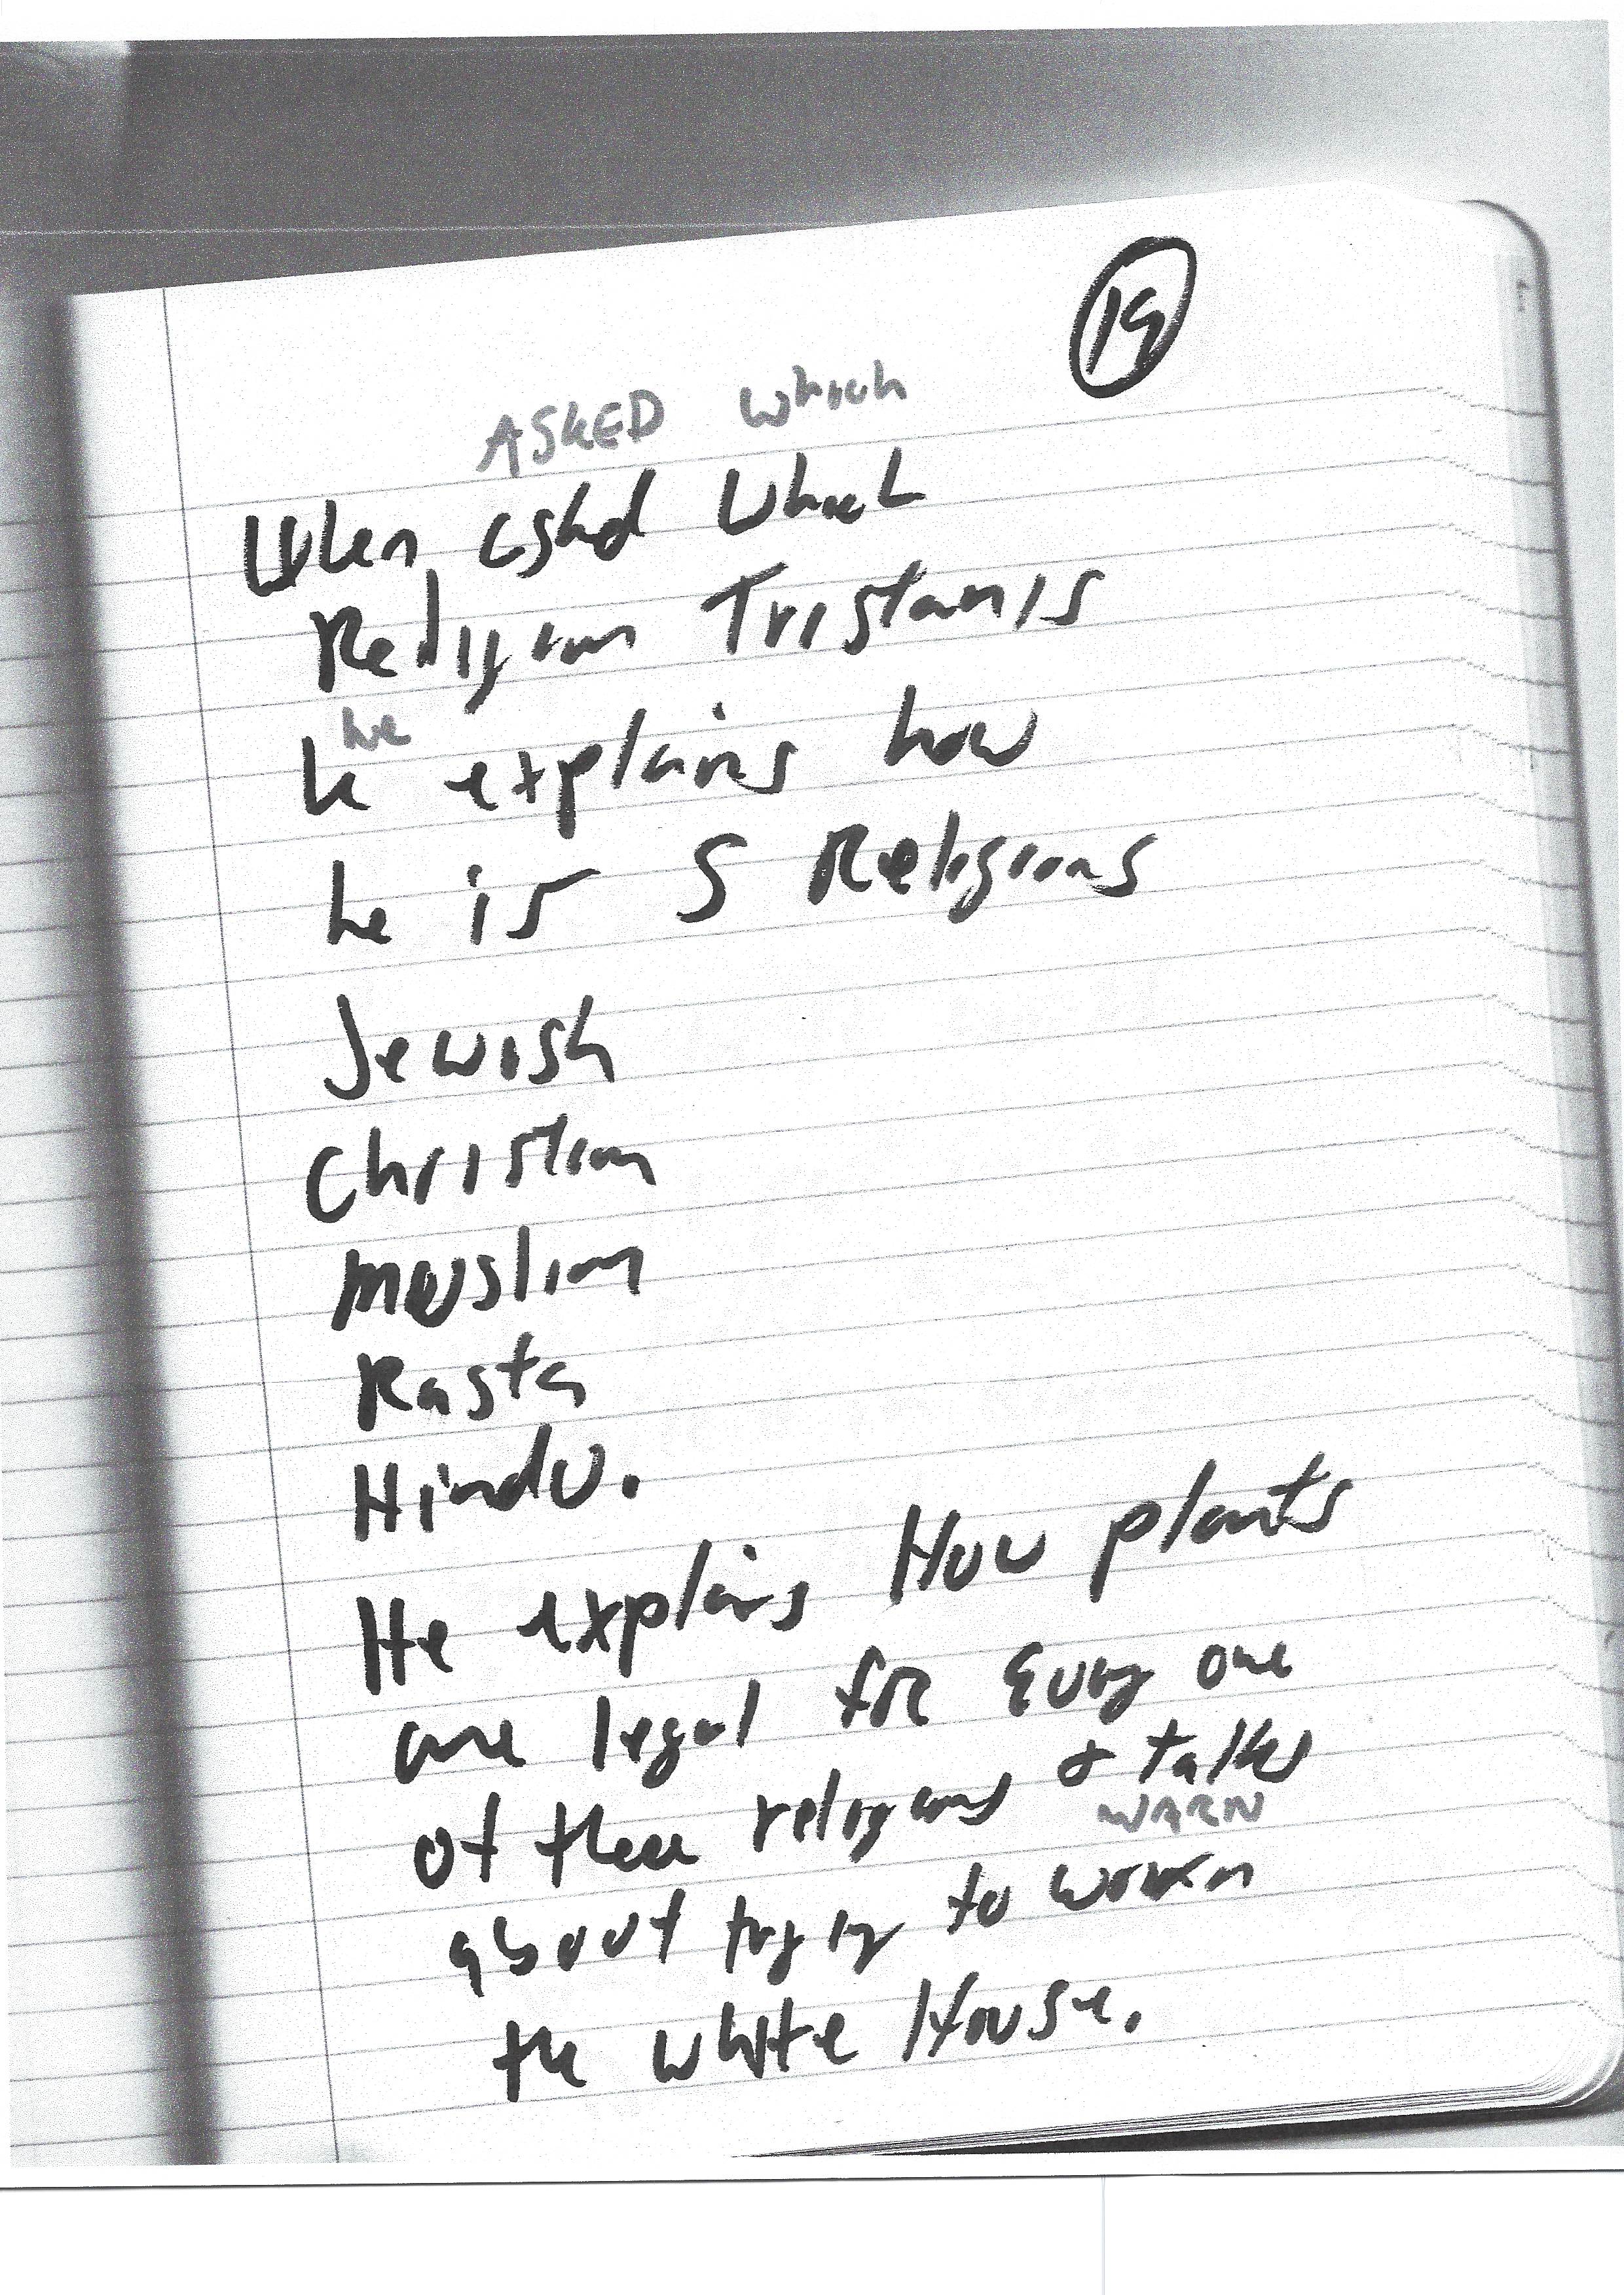 19
ASKED which
When asked which
Religion Tristan is
he
he explains how
he is 5 Religions
Jewish
Christian
Muslim
Rasta
Hindu.
He explains How plants
are legal for Every one
of these religions & talks
WARN
about trying to warn
the white House.